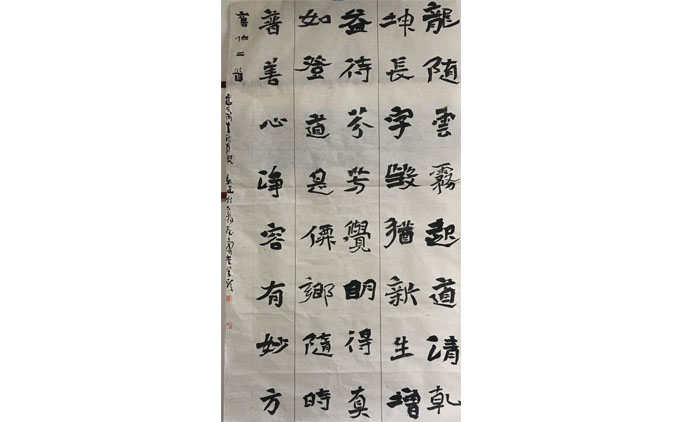 龍随雲霧起道清乾
坤長字毀猶新生增
益待芬芳覺明得真
如登道是僊鄉隨時
普善心净容有妙方
舊作二首